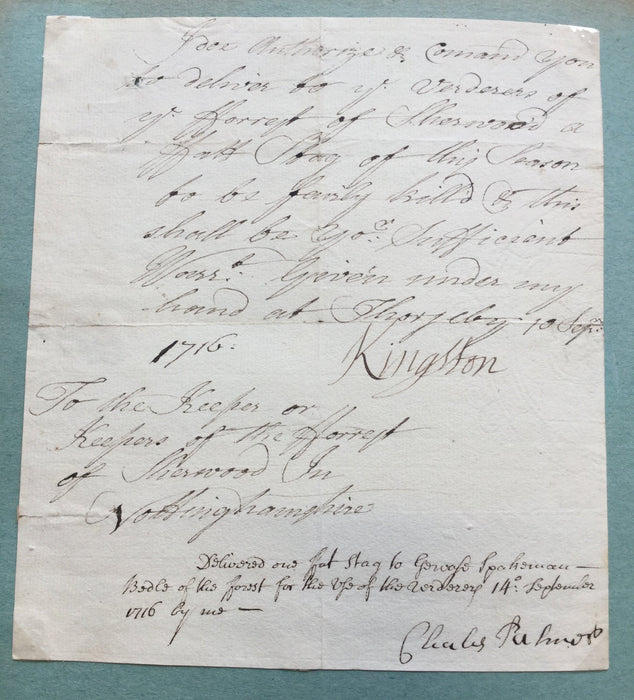 I doe Authorize & Comand you
to deliver to yᵉ Verderers of
yᵉ fforrest of Sherwood a
ffatt Stag of this Season
to be fairly killd & this
shall be yoʳ Sufficient
Warrᵗ Given under my
hand at Thoresby 10 Sepʳ
1716.
Kingston
To the Keeper or
Keepers of the fforrest
of Sherwood In
Nottinghamshire
Delivered one fat stag to Gervase Spakeman
Bedle of the forest for the Use of the verderers 14ᵒ September
1716 by me
Charles